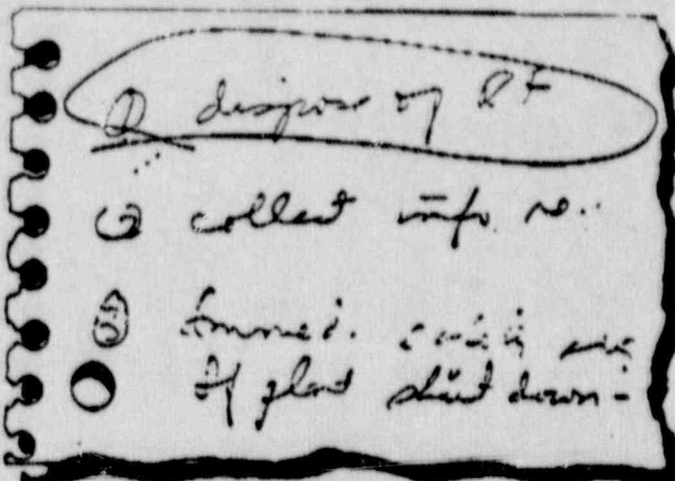 ① dispose of RF
② collect info re..
③ Immed.
of plant shut down -